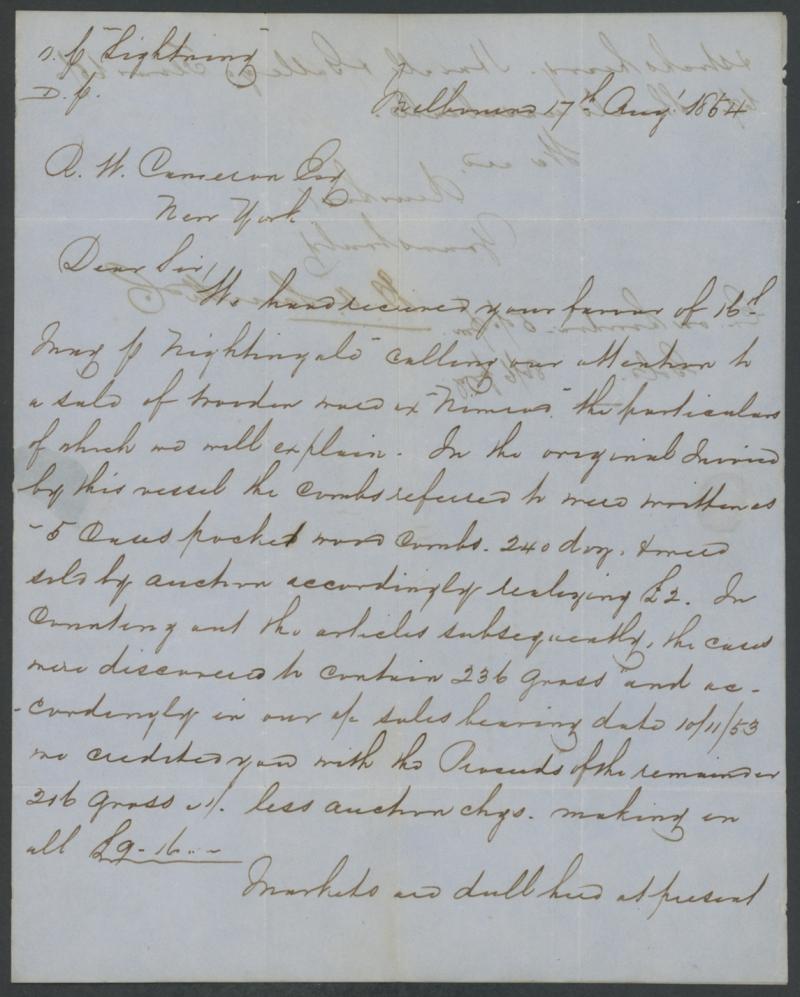 p "Lightning"
D. p.
Melbourne 17th Augt 1854
R. W. Cameron Esq
New York
Dear Sir,
We have received your favour of 16th
May p "Nightingale" calling our attention to
a sale of wooden ware ex "Nimrod" the particulars
of which we will explain. In the original Invoice
by this vessel the combs referred to were written as
"5 Cases pocket wood combs. 240 doz. & were
sold by auction accordingly realizing £2. In
Counting out the articles subsequently, the cases
were discovered to contain 236 gross and ac-
-cordingly in our a/c sales bearing date 10/11/53
we credited you with the Proceeds of the remainder
216 gross 1/. less auction chgs. making in
all £9-16.. -
Markets are dull here at present